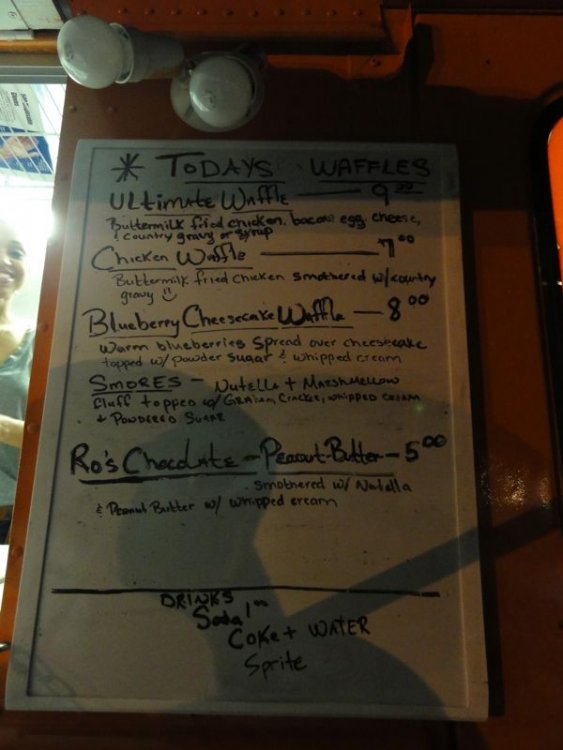 * TODAYS WAFFLES
ULtimate Waffle — 9.00
Buttermilk fried chicken, bacon, egg, cheese,
& country gravy or syrup
Chicken Waffle — 7.00
Buttermilk fried chicken smothered w/country
gravy
Blueberry Cheesecake Waffle — 8.00
Warm blueberries spread over cheesecake
topped w/ powder sugar & whipped cream
SMORES - Nutella + Marshmellow
fluff topped w/ Graham Cracker, whipped cream
+ Powdered Sugar
Ro's Chocolate - Peanut-Butter - 5.00
smothered w/ Nutella
& Peanut Butter w/ whipped cream
DRINKS
Soda 1.00
Coke + WATER
Sprite